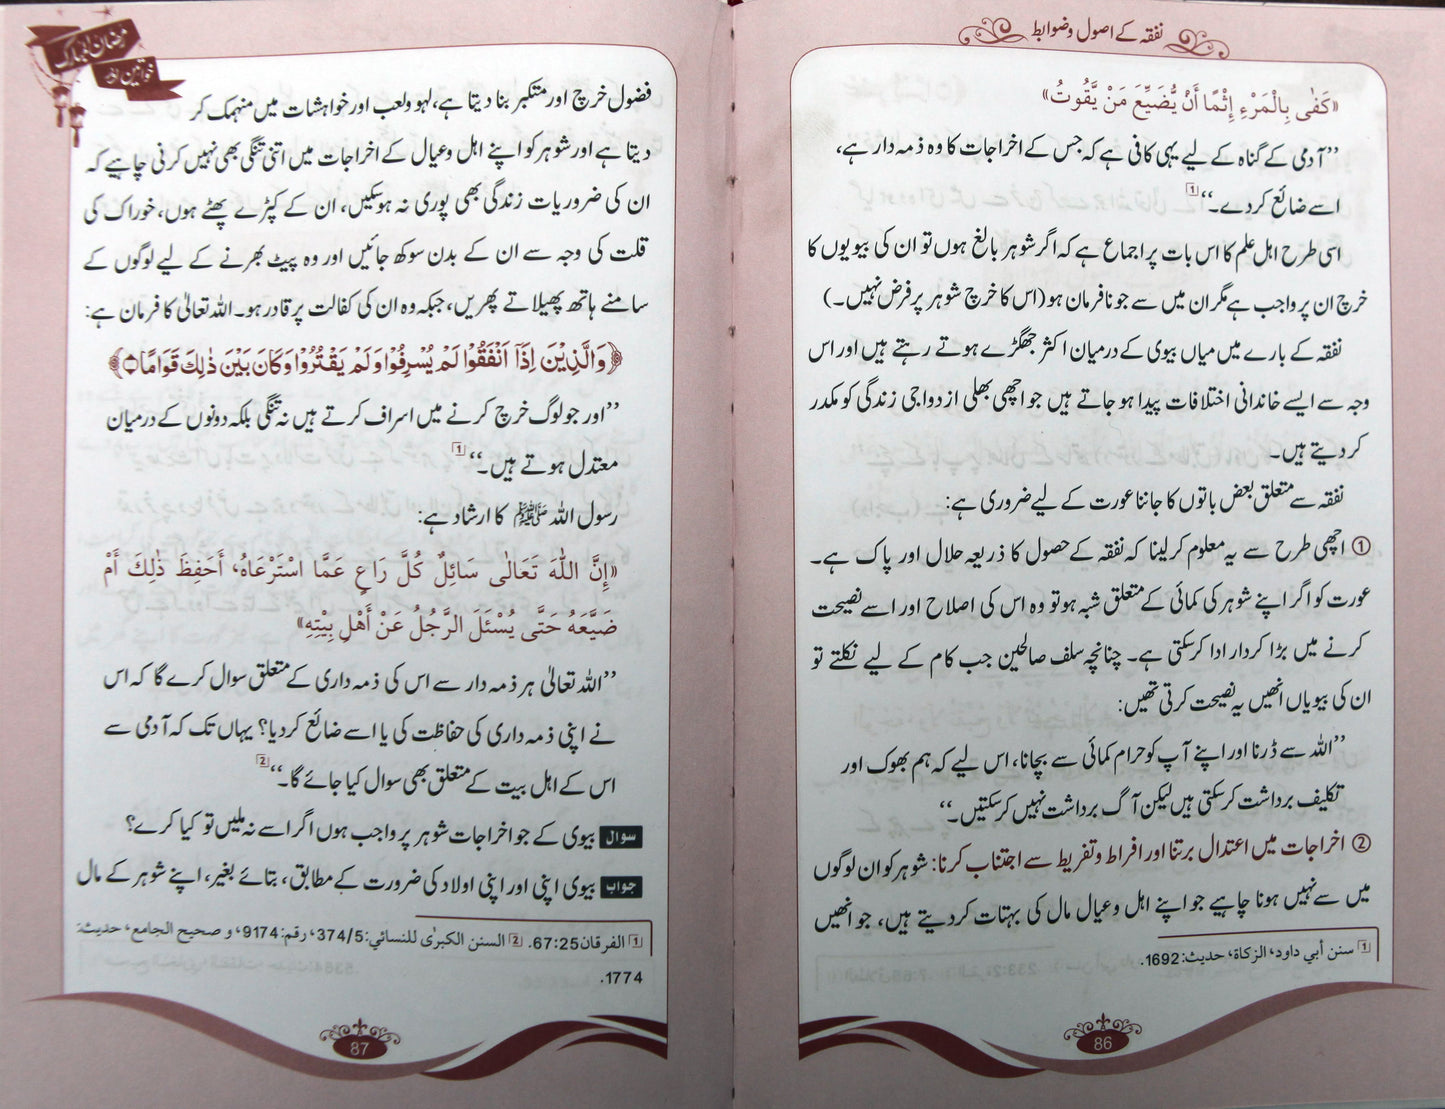 نفقہ کے اصول و ضوابط
«كَفٰى بِالْمَرْءِ إِثْمًا أَنْ يُّضَيِّعَ مَنْ يَّقُوتُ»
’’آدمی کے گناہ کے لیے یہی کافی ہے کہ جس کے اخراجات کا وہ ذمہ دار ہے،
اسے ضائع کر دے۔‘‘ 1
اسی طرح اہل علم کا اس بات پر اجماع ہے کہ اگر شوہر بالغ ہوں تو ان کی بیویوں کا
خرچ ان پر واجب ہے مگر ان میں سے جو نافرمان ہو (اس کا خرچ شوہر پر فرض نہیں۔)
نفقہ کے بارے میں میاں بیوی کے درمیان اکثر جھگڑے ہوتے رہتے ہیں اور اس
وجہ سے ایسے خاندانی اختلافات پیدا ہو جاتے ہیں جو اچھی بھلی ازدواجی زندگی کو مکدر
کر دیتے ہیں۔
نفقہ سے متعلق بعض باتوں کا جاننا عورت کے لیے ضروری ہے:
① اچھی طرح سے یہ معلوم کر لینا کہ نفقہ کے حصول کا ذریعہ حلال اور پاک ہے۔
عورت کو اگر اپنے شوہر کی کمائی کے متعلق شبہ ہو تو وہ اس کی اصلاح اور اسے نصیحت
کرنے میں بڑا کردار ادا کر سکتی ہے۔ چنانچہ سلف صالحین جب کام کے لیے نکلتے تو
ان کی بیویاں انھیں یہ نصیحت کرتی تھیں:
’’اللہ سے ڈرنا اور اپنے آپ کو حرام کمائی سے بچانا، اس لیے کہ ہم بھوک اور
تکلیف برداشت کر سکتی ہیں لیکن آگ برداشت نہیں کر سکتیں۔‘‘
② اخراجات میں اعتدال برتنا اور افراط و تفریط سے اجتناب کرنا: شوہر کو ان لوگوں
میں سے نہیں ہونا چاہیے جو اپنے اہل و عیال مال کی بہتات کر دیتے ہیں، جو انھیں
1 سنن أبي داود، الزكاة، حديث: 1692.
86
رمضان المبارک
اور خواتین
فضول خرچ اور متکبر بنا دیتا ہے، لہو و لعب اور خواہشات میں منہمک کر
دیتا ہے اور شوہر کو اپنے اہل و عیال کے اخراجات میں اتنی تنگی بھی نہیں کرنی چاہیے کہ
ان کی ضروریات زندگی بھی پوری نہ ہو سکیں، ان کے کپڑے پھٹے ہوں، خوراک کی
قلت کی وجہ سے ان کے بدن سوکھ جائیں اور وہ پیٹ بھرنے کے لیے لوگوں کے
سامنے ہاتھ پھیلاتے پھریں، جبکہ وہ ان کی کفالت پر قادر ہو۔ اللہ تعالیٰ کا فرمان ہے:
﴿وَالَّذِيْنَ اِذَآ اَنْفَقُوْا لَمْ يُسْرِفُوْا وَلَمْ يَقْتُرُوْا وَكَانَ بَيْنَ ذٰلِكَ قَوَامًا﴾
’’اور جو لوگ خرچ کرنے میں اسراف کرتے ہیں نہ تنگی بلکہ دونوں کے درمیان
معتدل ہوتے ہیں۔‘‘ 1
رسول اللہ ﷺ کا ارشاد ہے:
«إِنَّ اللّٰهَ تَعَالٰى سَائِلٌ كُلَّ رَاعٍ عَمَّا اسْتَرْعَاهُ، أَحَفِظَ ذٰلِكَ أَمْ
ضَيَّعَهُ حَتَّى يُسْئَلَ الرَّجُلُ عَنْ أَهْلِ بِيْتِهِ»
’’اللہ تعالیٰ ہر ذمہ دار سے اس کی ذمہ داری کے متعلق سوال کرے گا کہ اس
نے اپنی ذمہ داری کی حفاظت کی یا اسے ضائع کر دیا؟ یہاں تک کہ آدمی سے
اس کے اہل بیت کے متعلق بھی سوال کیا جائے گا۔‘‘ 2
سوال بیوی کے جو اخراجات شوہر پر واجب ہوں اگر اسے نہ ملیں تو کیا کرے؟
جواب بیوی اپنی اور اپنی اولاد کی ضرورت کے مطابق، بتائے بغیر، اپنے شوہر کے مال
1 الفرقان 67:25. 2 السنن الكبرى للنسائي: 374/5، رقم: 9174، و صحيح الجامع، حديث:
1774.
87